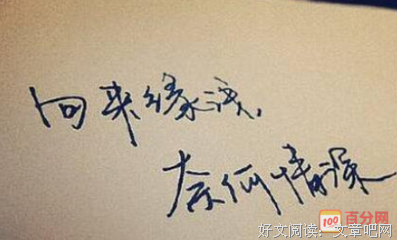 向来缘浅，
奈何情深
100 百分网
好文阅读：文章吧网